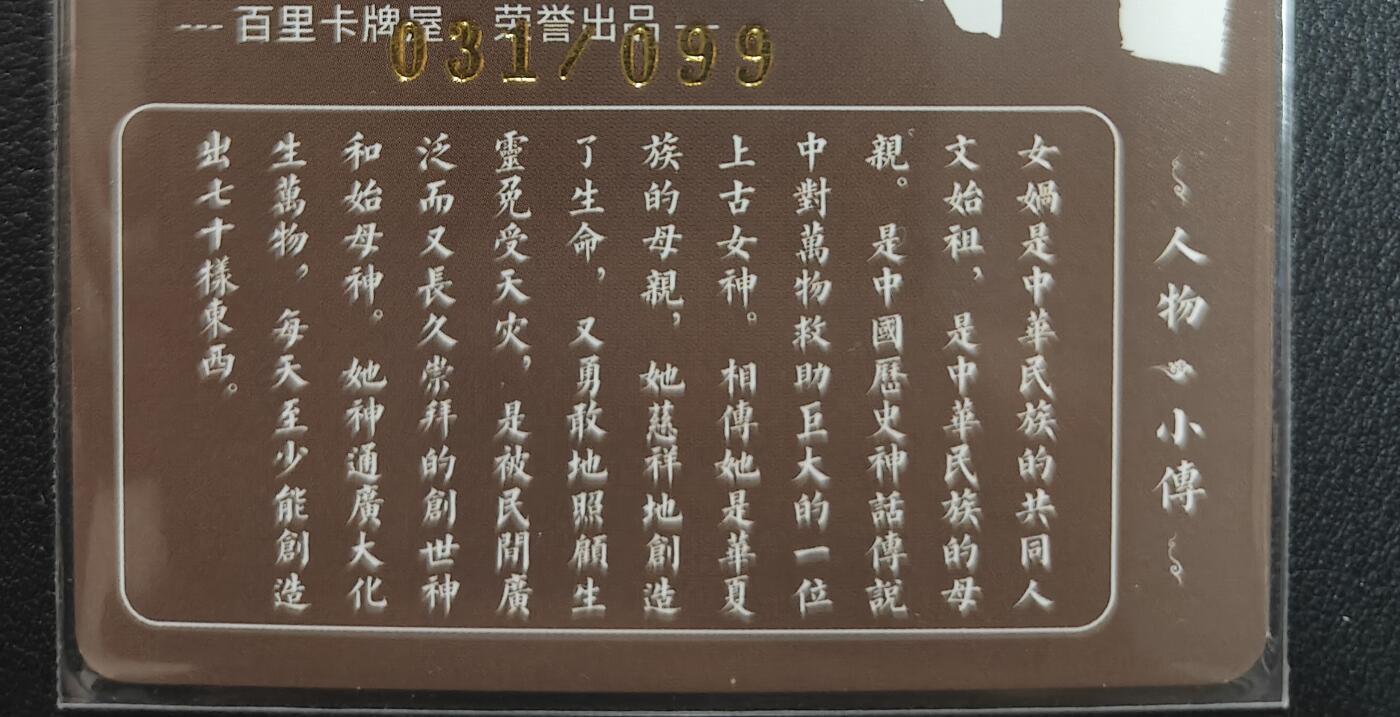 --- 百里卡牌屋 荣誉出品 ---
031/099
人物小傳
女媧是中華民族的共同人
文始祖，是中華民族的母
親。是中國歷史神話傳說
中對萬物救助巨大的一位
上古女神。相傳她是華夏
族的母親，她慈祥地創造
了生命，又勇敢地照顧生
靈免受天灾，是被民間廣
泛而又長久崇拜的創世神
和始母神。她神通廣大化
生萬物，每天至少能創造
出七十樣東西。